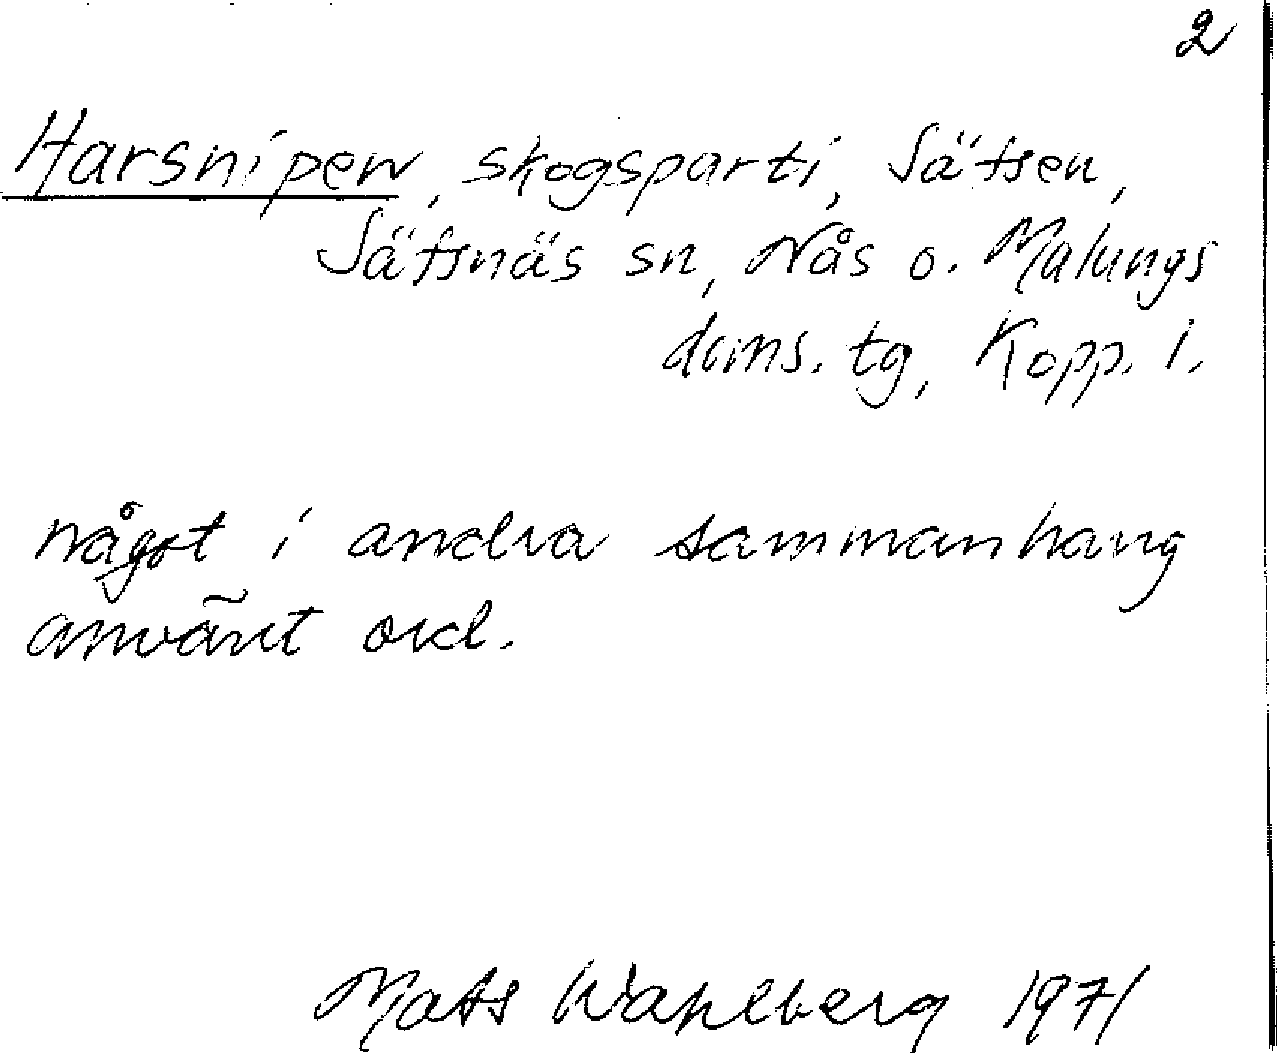 2
Harsnipen, skogsparti, Säfsen,
Säfsnäs sn, Nås o. Malungs
doms. tg, Kopp. l.
något i andra sammanhang
använt ord.
Mats Wahlberg 1971